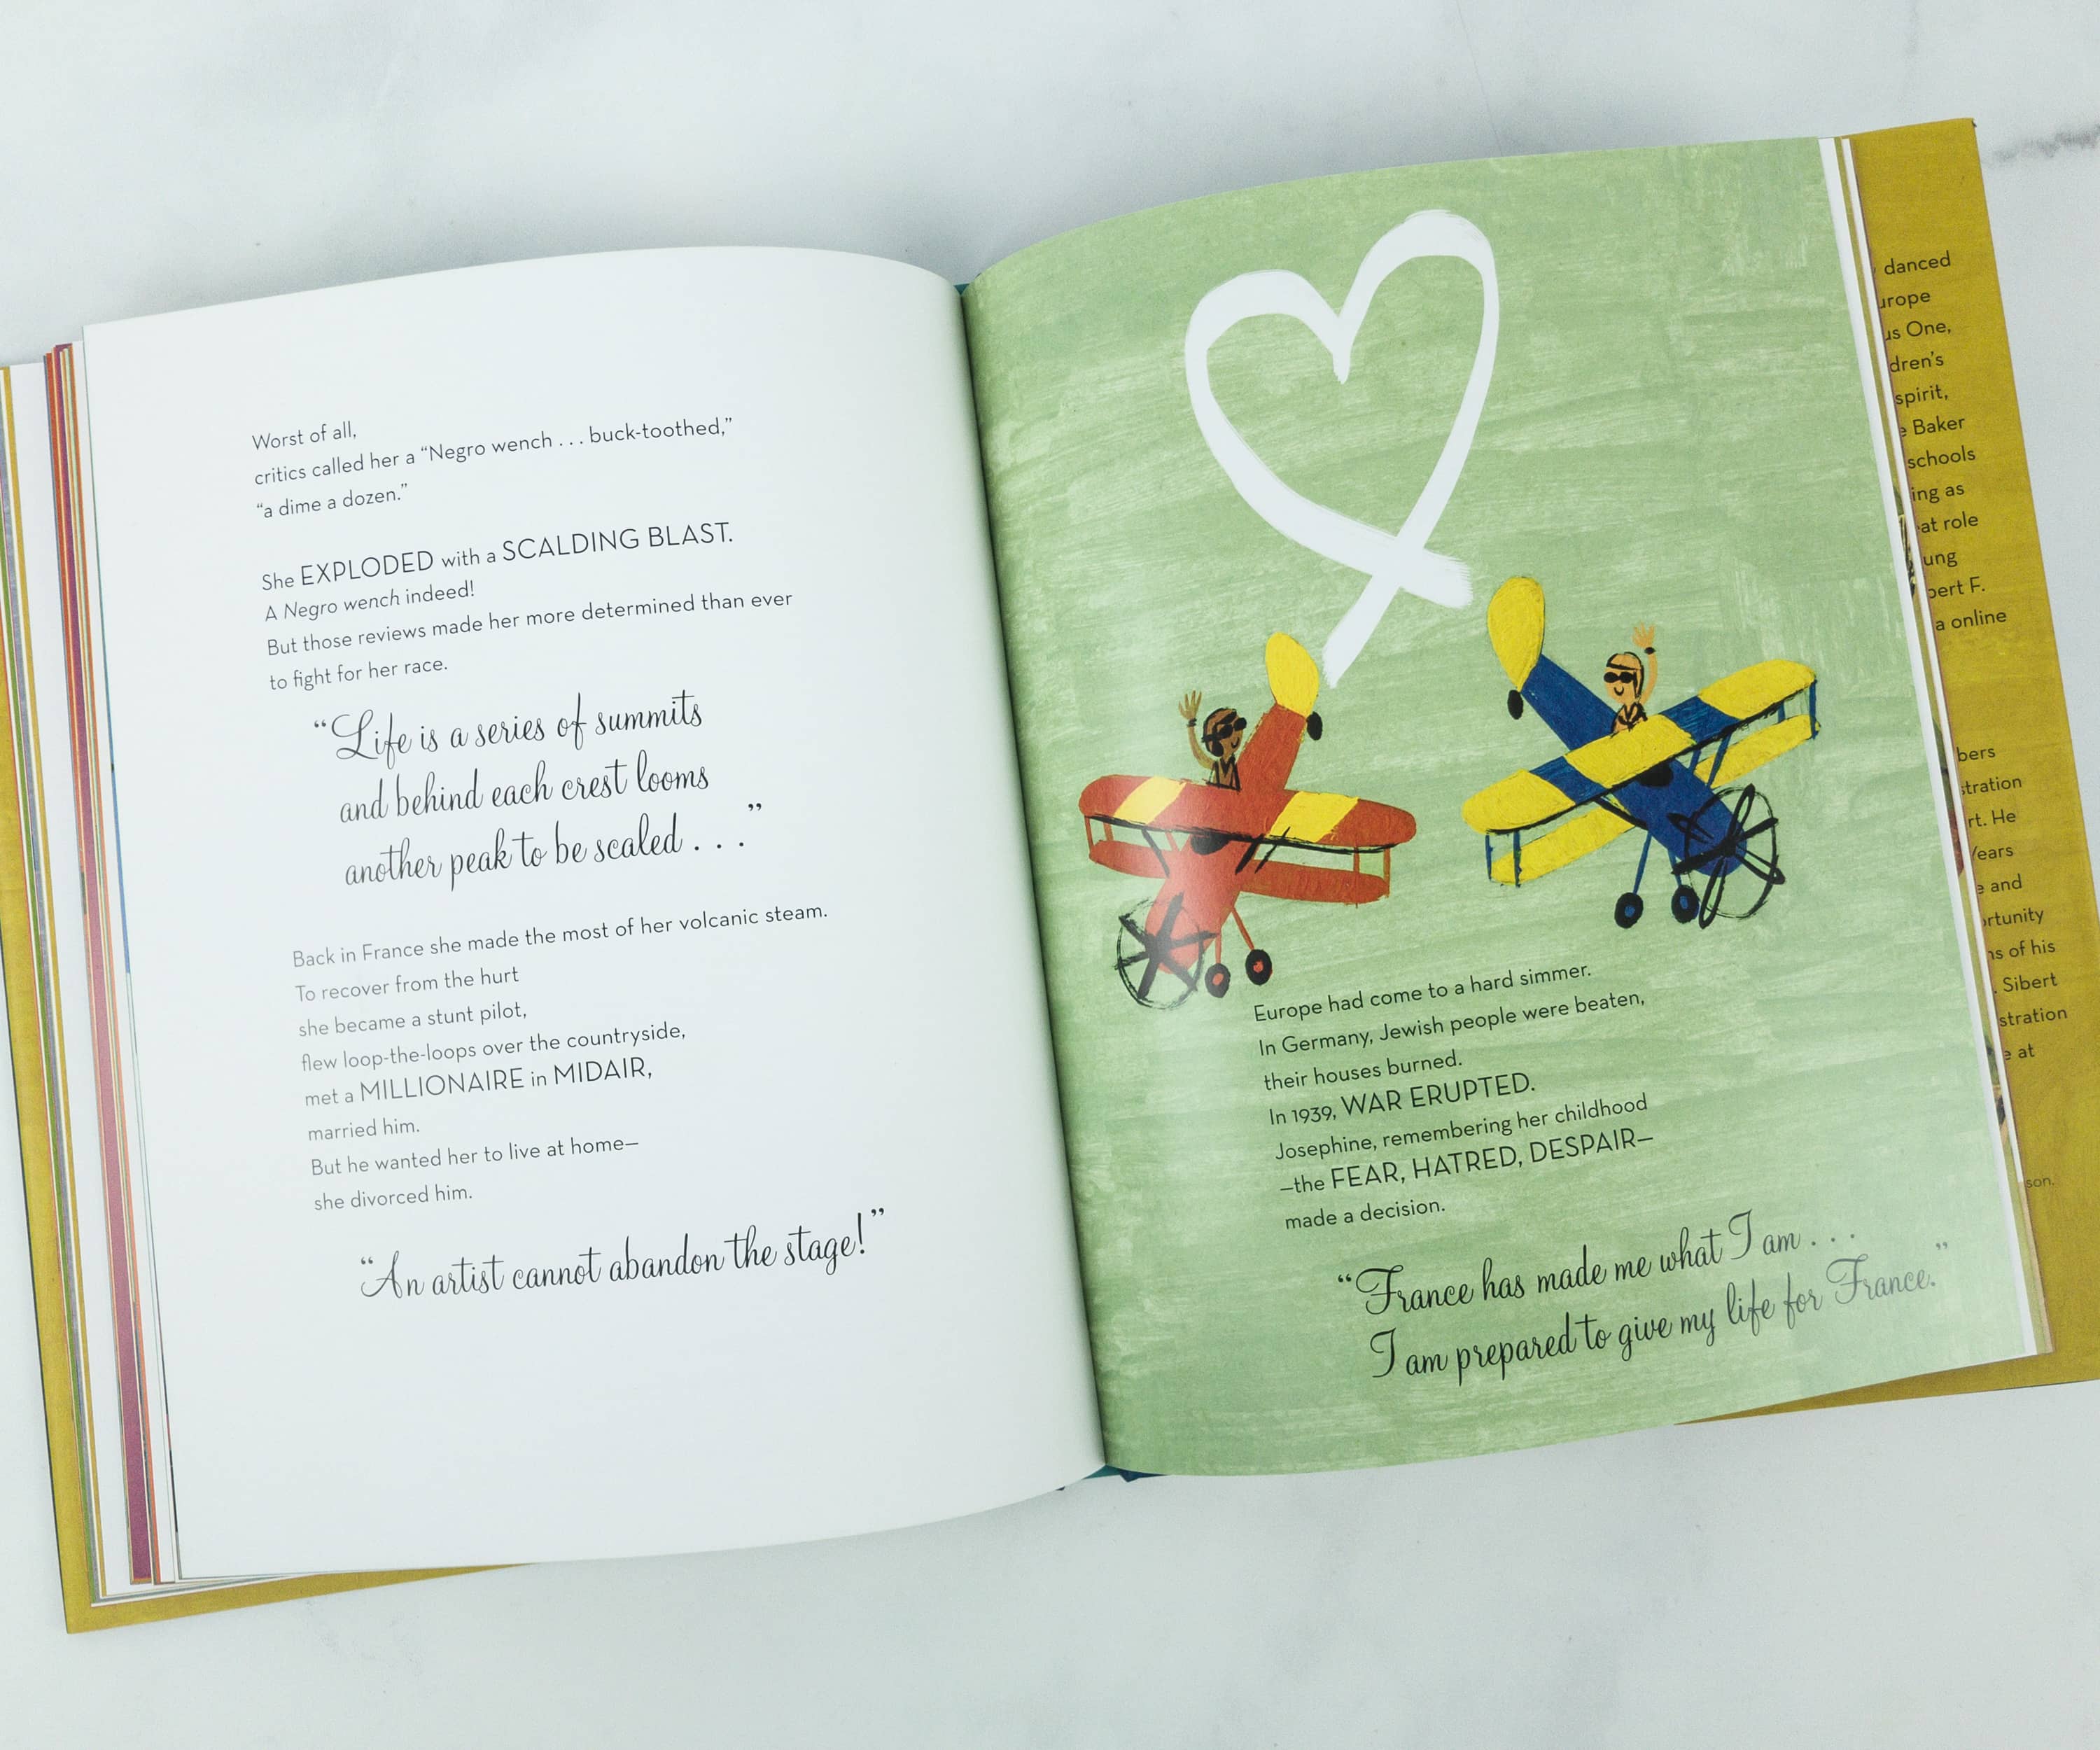 Worst of all,
critics called her a “Negro wench . . . buck-toothed,”
“a dime a dozen.”
She EXPLODED with a SCALDING BLAST.
A Negro wench indeed!
But those reviews made her more determined than ever
to fight for her race.
“Life is a series of summits
and behind each crest looms
another peak to be scaled . . .”
Back in France she made the most of her volcanic steam.
To recover from the hurt
she became a stunt pilot,
flew loop-the-loops over the countryside,
met a MILLIONAIRE in MIDAIR,
married him.
But he wanted her to live at home—
she divorced him.
“An artist cannot abandon the stage!”
Europe had come to a hard simmer.
In Germany, Jewish people were beaten,
their houses burned.
In 1939, WAR ERUPTED.
Josephine, remembering her childhood
—the FEAR, HATRED, DESPAIR—
made a decision.
“France has made me what I am . . .
I am prepared to give my life for France.”
danced
urope
us One,
dren’s
spirit,
Baker
schools
ing as
at role
ung
bert F.
a online
bers
stration
rt. He
Years
and
ortunity
ns of his
. Sibert
stration
at
son.